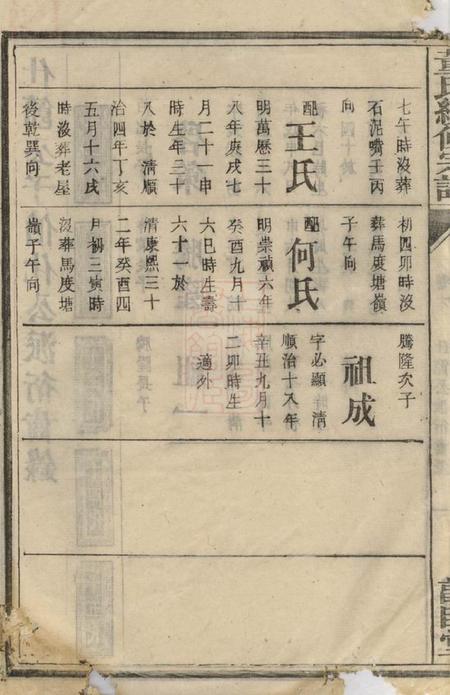 七午時沒葬
石泥嘴壬丙
向
配王氏
明萬歷三十
八年庚戌七
月二十一申
時生年三十
八於清順
治四年丁亥
五月十六戌
時沒葬老屋
後乾巽向
初四卯時沒
葬馬度塘嶺
子午向
配何氏
明崇禎六年
癸酉九月十
六巳時生壽
六十一於
清康熙三十
二年癸酉四
月初三寅時
沒葬馬度塘
嶺子午向
騰隆次子
祖成
字必顯清
順治十八年
辛丑九月十
二卯時生
適外